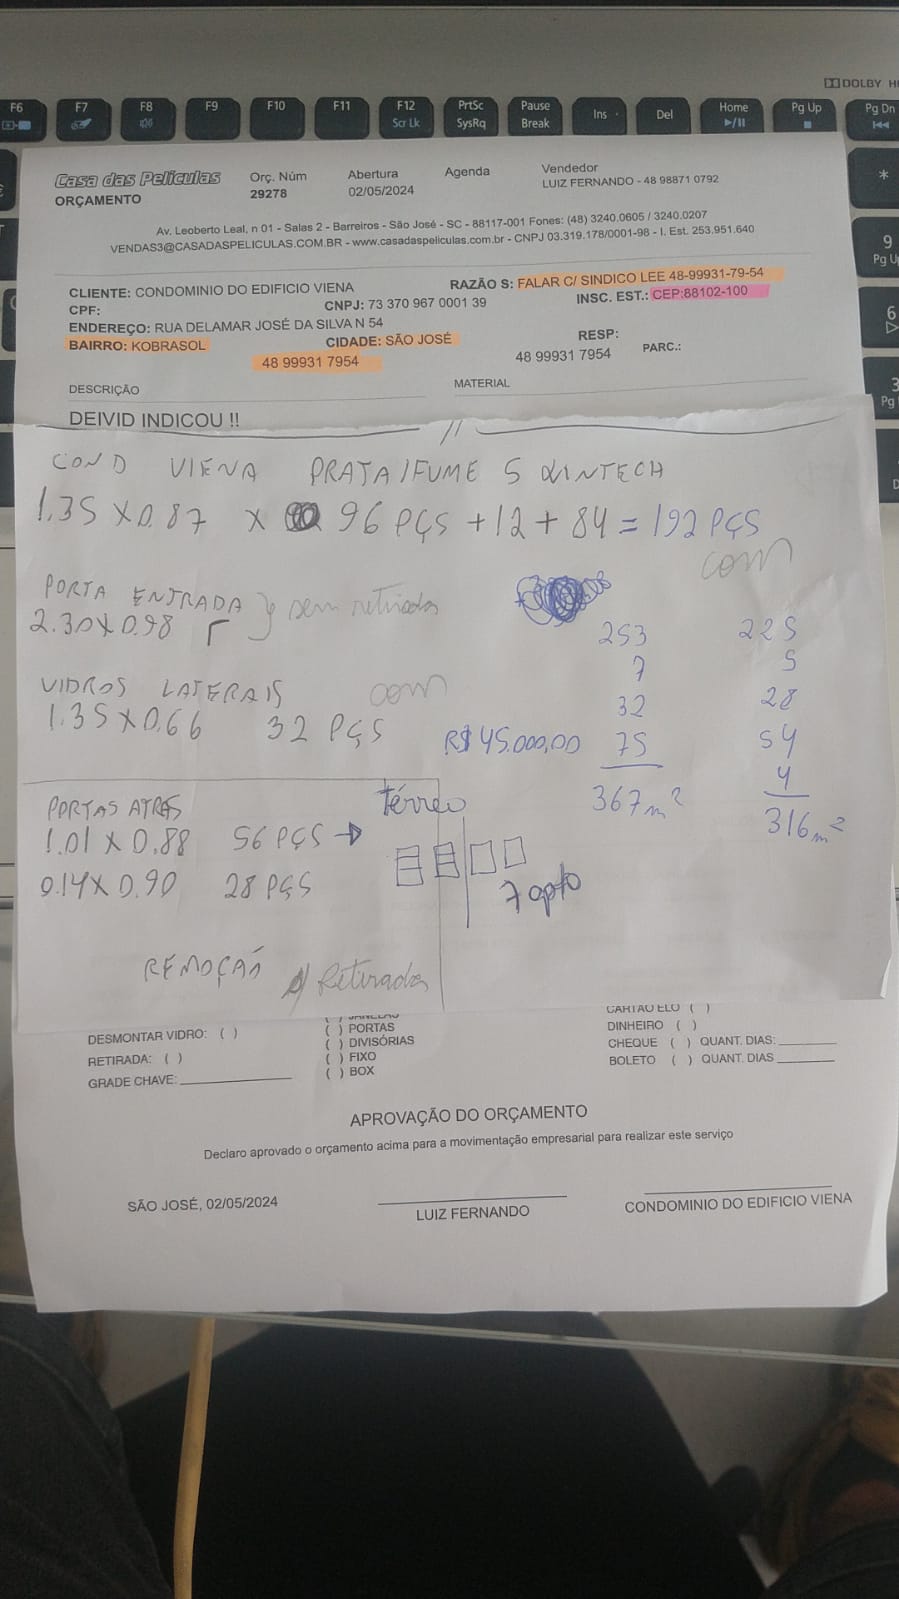 DOLBY
F6 F7 F8 F9 F10 F11 F12 PrtSc Pause Ins Del Home Pg Up Pg Dn
Scr Lk SysRq Break
Casa das Peliculas
ORÇAMENTO
Orç. Núm
29278
Abertura
02/05/2024
Agenda
Vendedor
LUIZ FERNANDO - 48 98871 0792
Av. Leoberto Leal, n 01 - Salas 2 - Barreiros - São José - SC - 88117-001 Fones: (48) 3240.0605 / 3240.0207
VENDAS3@CASADASPELICULAS.COM.BR - www.casadaspeliculas.com.br - CNPJ 03.319.178/0001-98 - I. Est. 253.951.640
CLIENTE: CONDOMINIO DO EDIFICIO VIENA RAZÃO S: FALAR C/ SINDICO LEE 48-99931-79-54
CPF: CNPJ: 73 370 967 0001 39 INSC. EST.: CEP:88102-100
ENDEREÇO: RUA DELAMAR JOSÉ DA SILVA N 54
BAIRRO: KOBRASOL CIDADE: SÃO JOSÉ RESP:
48 99931 7954 48 99931 7954 PARC.:
DESCRIÇÃO MATERIAL
DEIVID INDICOU !!
COND VIENA PRATA/FUME 5 WINTECH
1.35 X 0.87 X 96 PÇS + 12 + 84 = 192 PÇS
com
PORTA ENTRADA
2.30 X 0.98
sem retirados
VIDROS LATERAIS com
1.35 X 0.66 32 PÇS
R$ 45.000,00
253
7
32
75
367m²
225
5
28
54
4
316m²
PORTAS ATRÁS
1.01 X 0.88 56 PÇS
0.14 X 0.90 28 PÇS
térreo
7 apto
REMOÇÃO
Retirados
DESMONTAR VIDRO: ( )
RETIRADA: ( )
GRADE CHAVE:
( ) JANELAS
( ) PORTAS
( ) DIVISÓRIAS
( ) FIXO
( ) BOX
CARTAO ELO ( )
DINHEIRO ( )
CHEQUE ( ) QUANT. DIAS:
BOLETO ( ) QUANT. DIAS
APROVAÇÃO DO ORÇAMENTO
Declaro aprovado o orçamento acima para a movimentação empresarial para realizar este serviço
SÃO JOSÉ, 02/05/2024
LUIZ FERNANDO
CONDOMINIO DO EDIFICIO VIENA